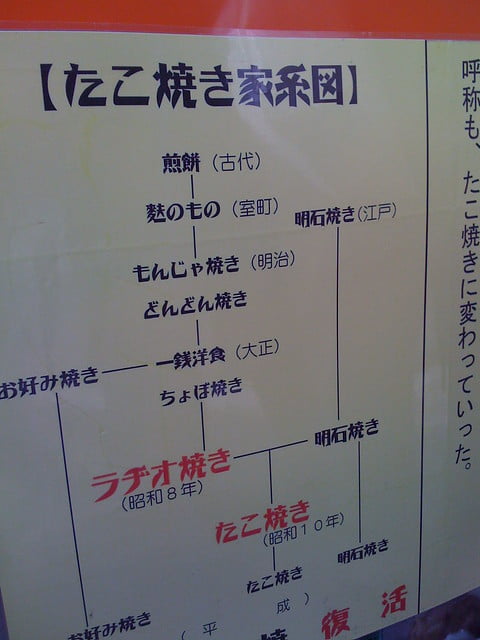 【たこ焼き家系図】
煎餅（古代）
麩のもの（室町）
明石焼き（江戸）
もんじゃ焼き（明治）
どんどん焼き
一銭洋食（大正）
お好み焼き
ちょぼ焼き
明石焼き
ラヂオ焼き
（昭和８年）
たこ焼き
（昭和１０年）
明石焼き
たこ焼き
お好み焼き
（平成）
焼復活
呼称も、たこ焼きに変わっていった。